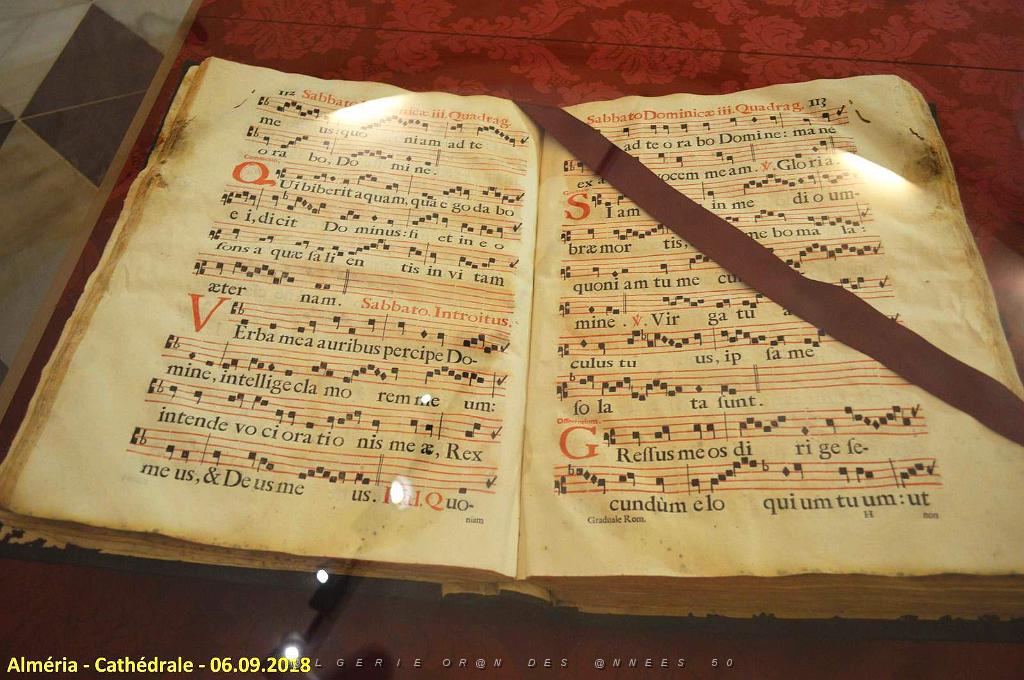 112 Sabbato Dominicæ iii. Quadrag.
me us: quo niam ad te
o ra bo, Do mi ne.
Communio.
QUi biberit aquam, quã e go da bo
e i, dicit Do minus: fi et in e o
fons a quæ ſa li en tis in vi tam
æter nam. Sabbato. Introitus.
VErba mea auribus percipe Do-
mine, intellige cla mo rem me um:
intende vo ci ora tio nis me æ, Rex
me us, & De us me us. Quo-
niam
Sabbato Dominicæ iii. Quadrag. 113
ad te o ra bo Domi ne: ma ne
ex vocem me am. ℣. Glo ri a.
SI am in me di o um-
bræ mor tis, me bo ma la:
quoni am tu me
mine. ℣. Vir ga tu a
culus tu us, ip ſa me
ſo la ta ſunt.
Offertorium.
GReſſus me os di ri ge ſe-
cundùm e lo qui um tu um: ut
Graduale Rom. H non
Alméria - Cathédrale - 06.09.2018
LGERIE OR@N DES @NNEES 50